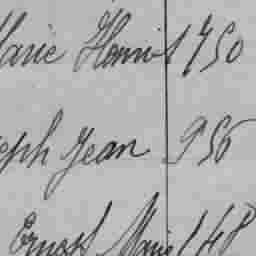 Marie Henri 1750
eph Jean 956
Ernest Marie 148